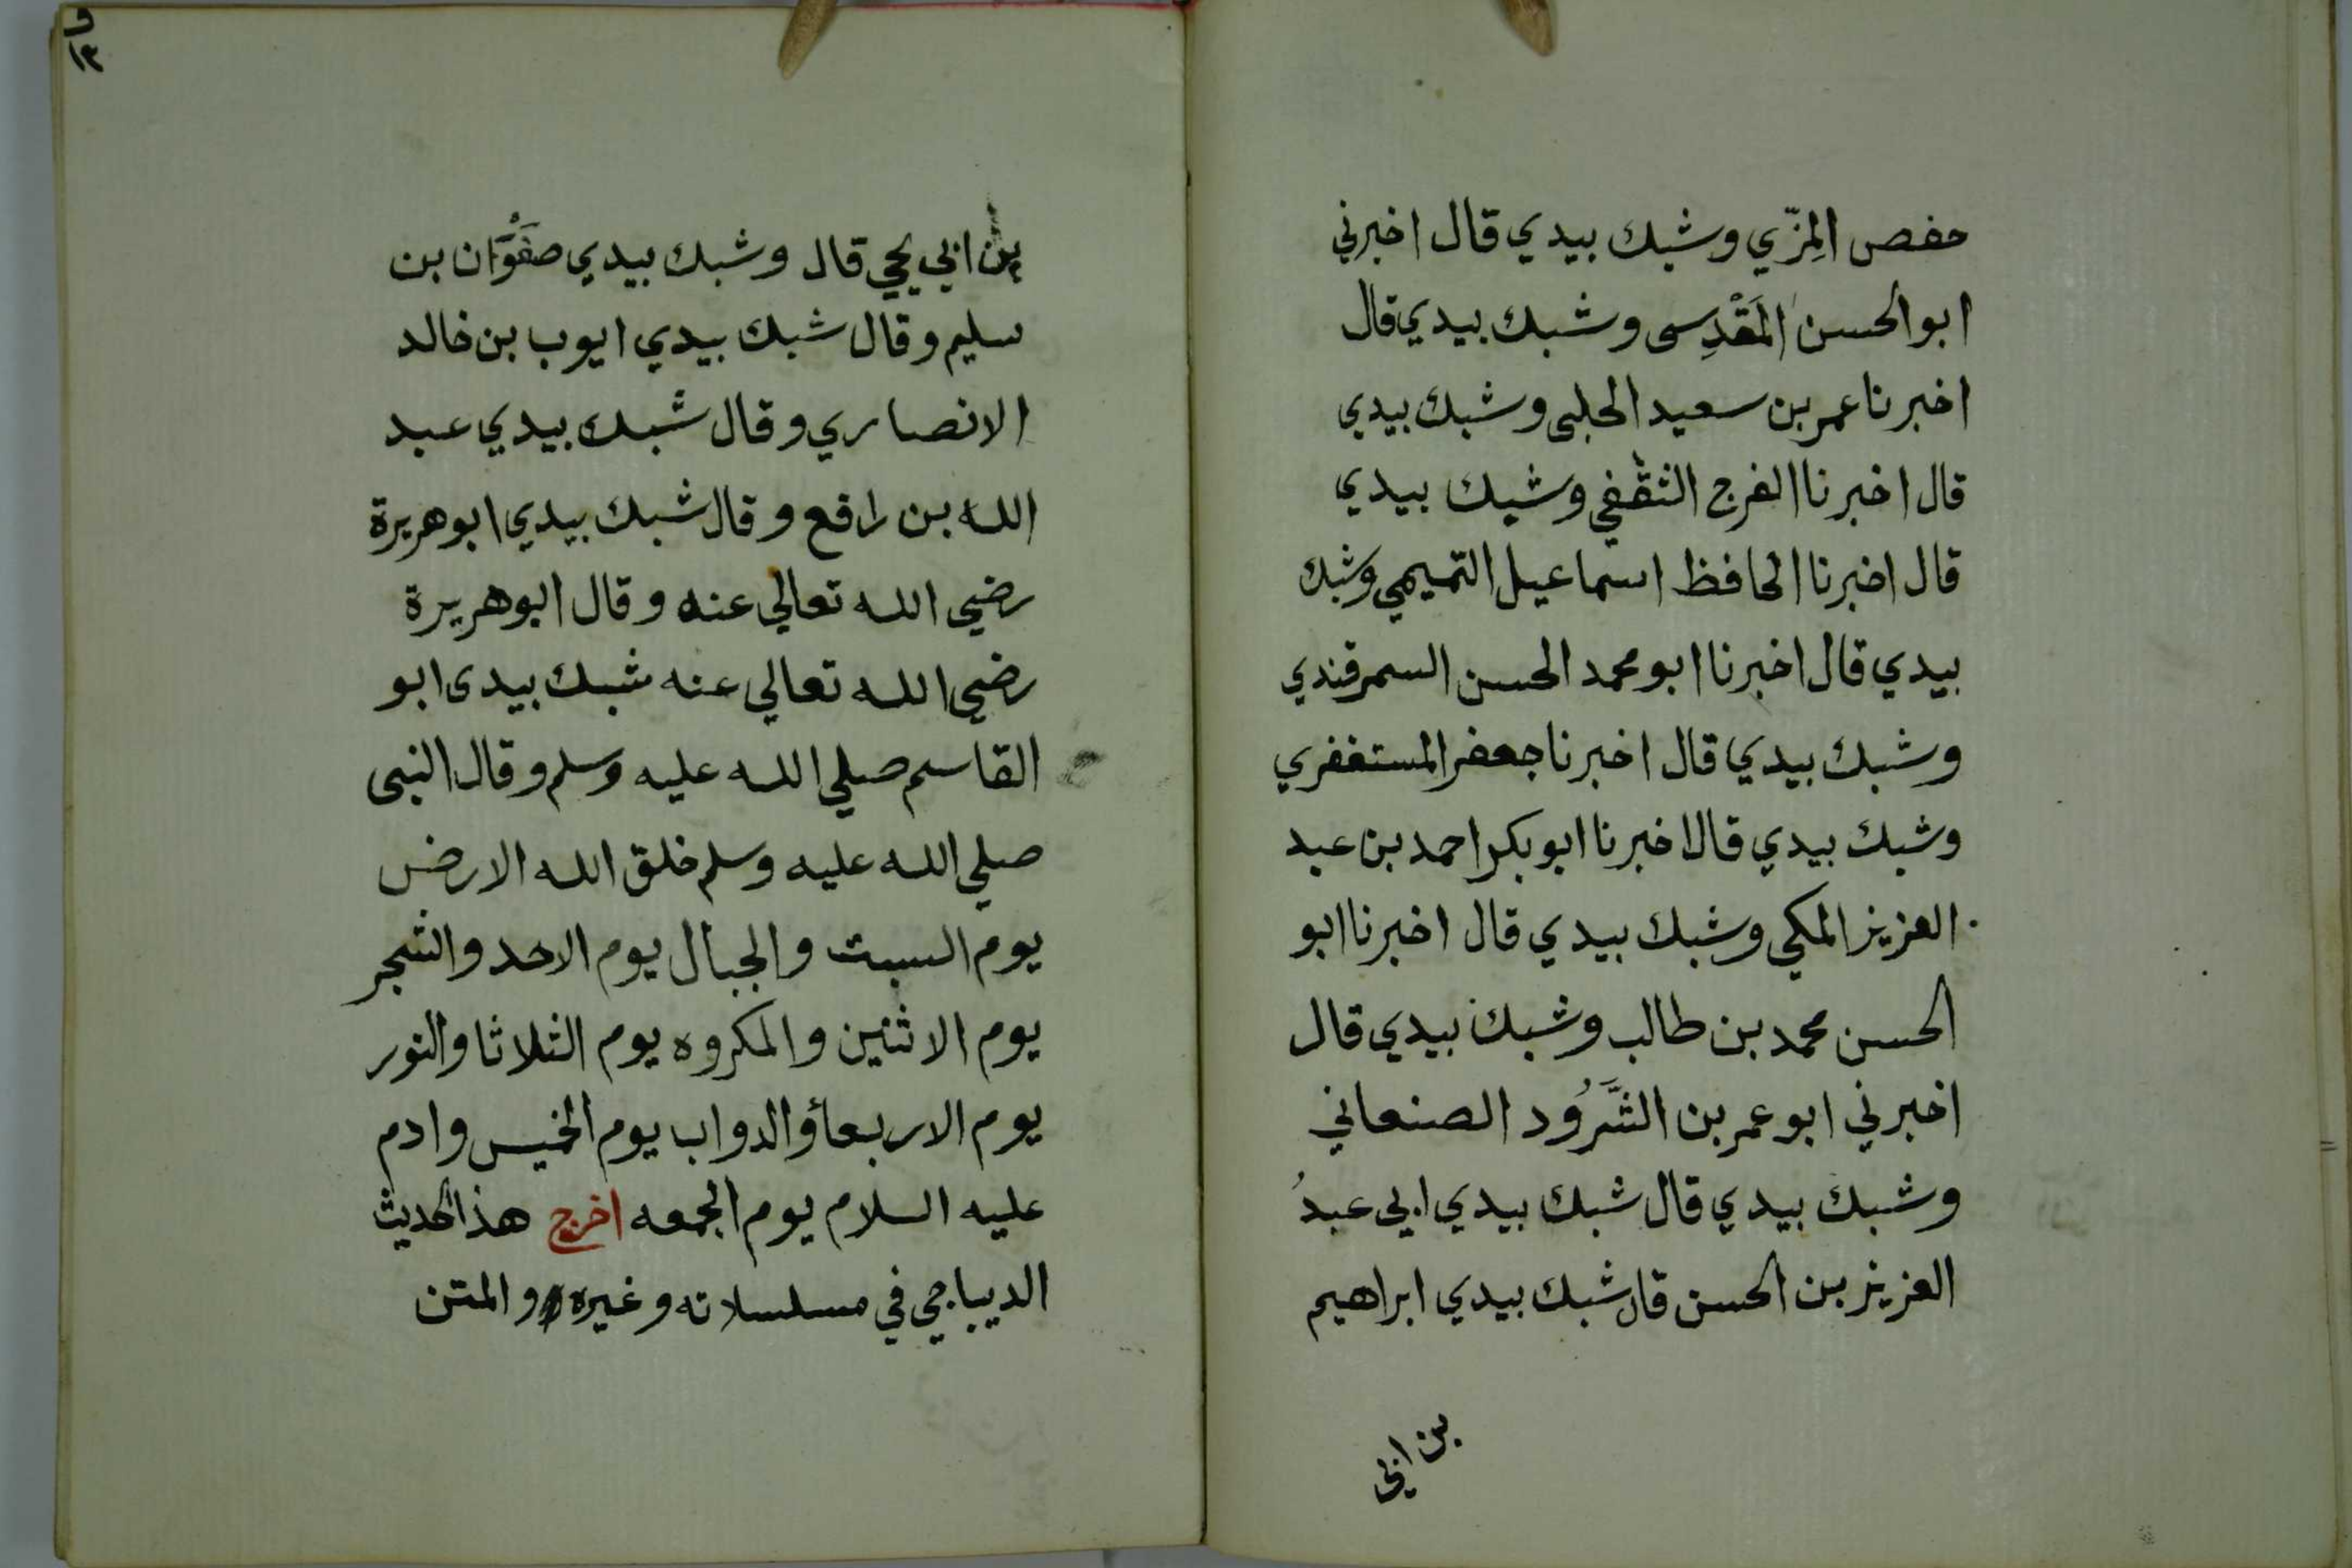 حفص المِزّي وشبك بيدي قال اخبرني
ابو الحسن المَقْدِسى وشبك بيدي قال
اخبرنا عمر بن سعيد الحلبى وشبك بيدي
قال اخبرنا الفرج الثقفي وشبك بيدي
قال اخبرنا الحافظ اسماعيل التميمي وشبك
بيدي قال اخبرنا ابو محمد الحسن السمرقندي
وشبك بيدي قال اخبرنا جعفر المستغفري
وشبك بيدي قال اخبرنا ابو بكر احمد بن عبد
العزيز المكي وشبك بيدي قال اخبرنا ابو
الحسن محمد بن طالب وشبك بيدي قال
اخبرني ابو عمر بن الشَّرُود الصنعاني
وشبك بيدي قال شبك بيدي ابي عبدُ
العزيز بن الحسن قال شبك بيدي ابراهيم
بن ابي
بن ابي يحيي قال وشبك بيدي صَفْوَان بن
سليم وقال شبك بيدي ايوب بن خالد
الانصاري وقال شبك بيدي عبد
الله بن رافع وقال شبك بيدي ابو هريرة
رضي الله تعالي عنه وقال ابو هريرة
رضي الله تعالي عنه شبك بيدى ابو
القاسم صلي الله عليه وسلم وقال النبى
صلي الله عليه وسلم خلق الله الارض
يوم السبت والجبال يوم الاحد والشجر
يوم الاثنين والمكروه يوم الثلاثا والنور
يوم الاربعأ والدواب يوم الخميس وادم
عليه السلام يوم الجمعه اخرج هذا الحديث
الديباجي في مسلسلاته وغيره والمتن